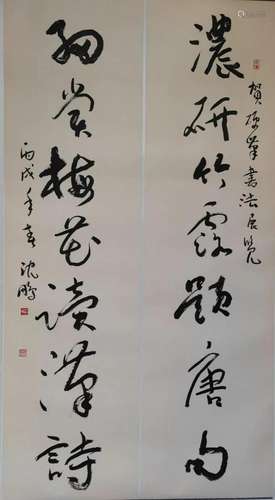 賀書法展览
濃研竹露題唐句
細賞梅花讀漢詩
丙戌年春沈鹏